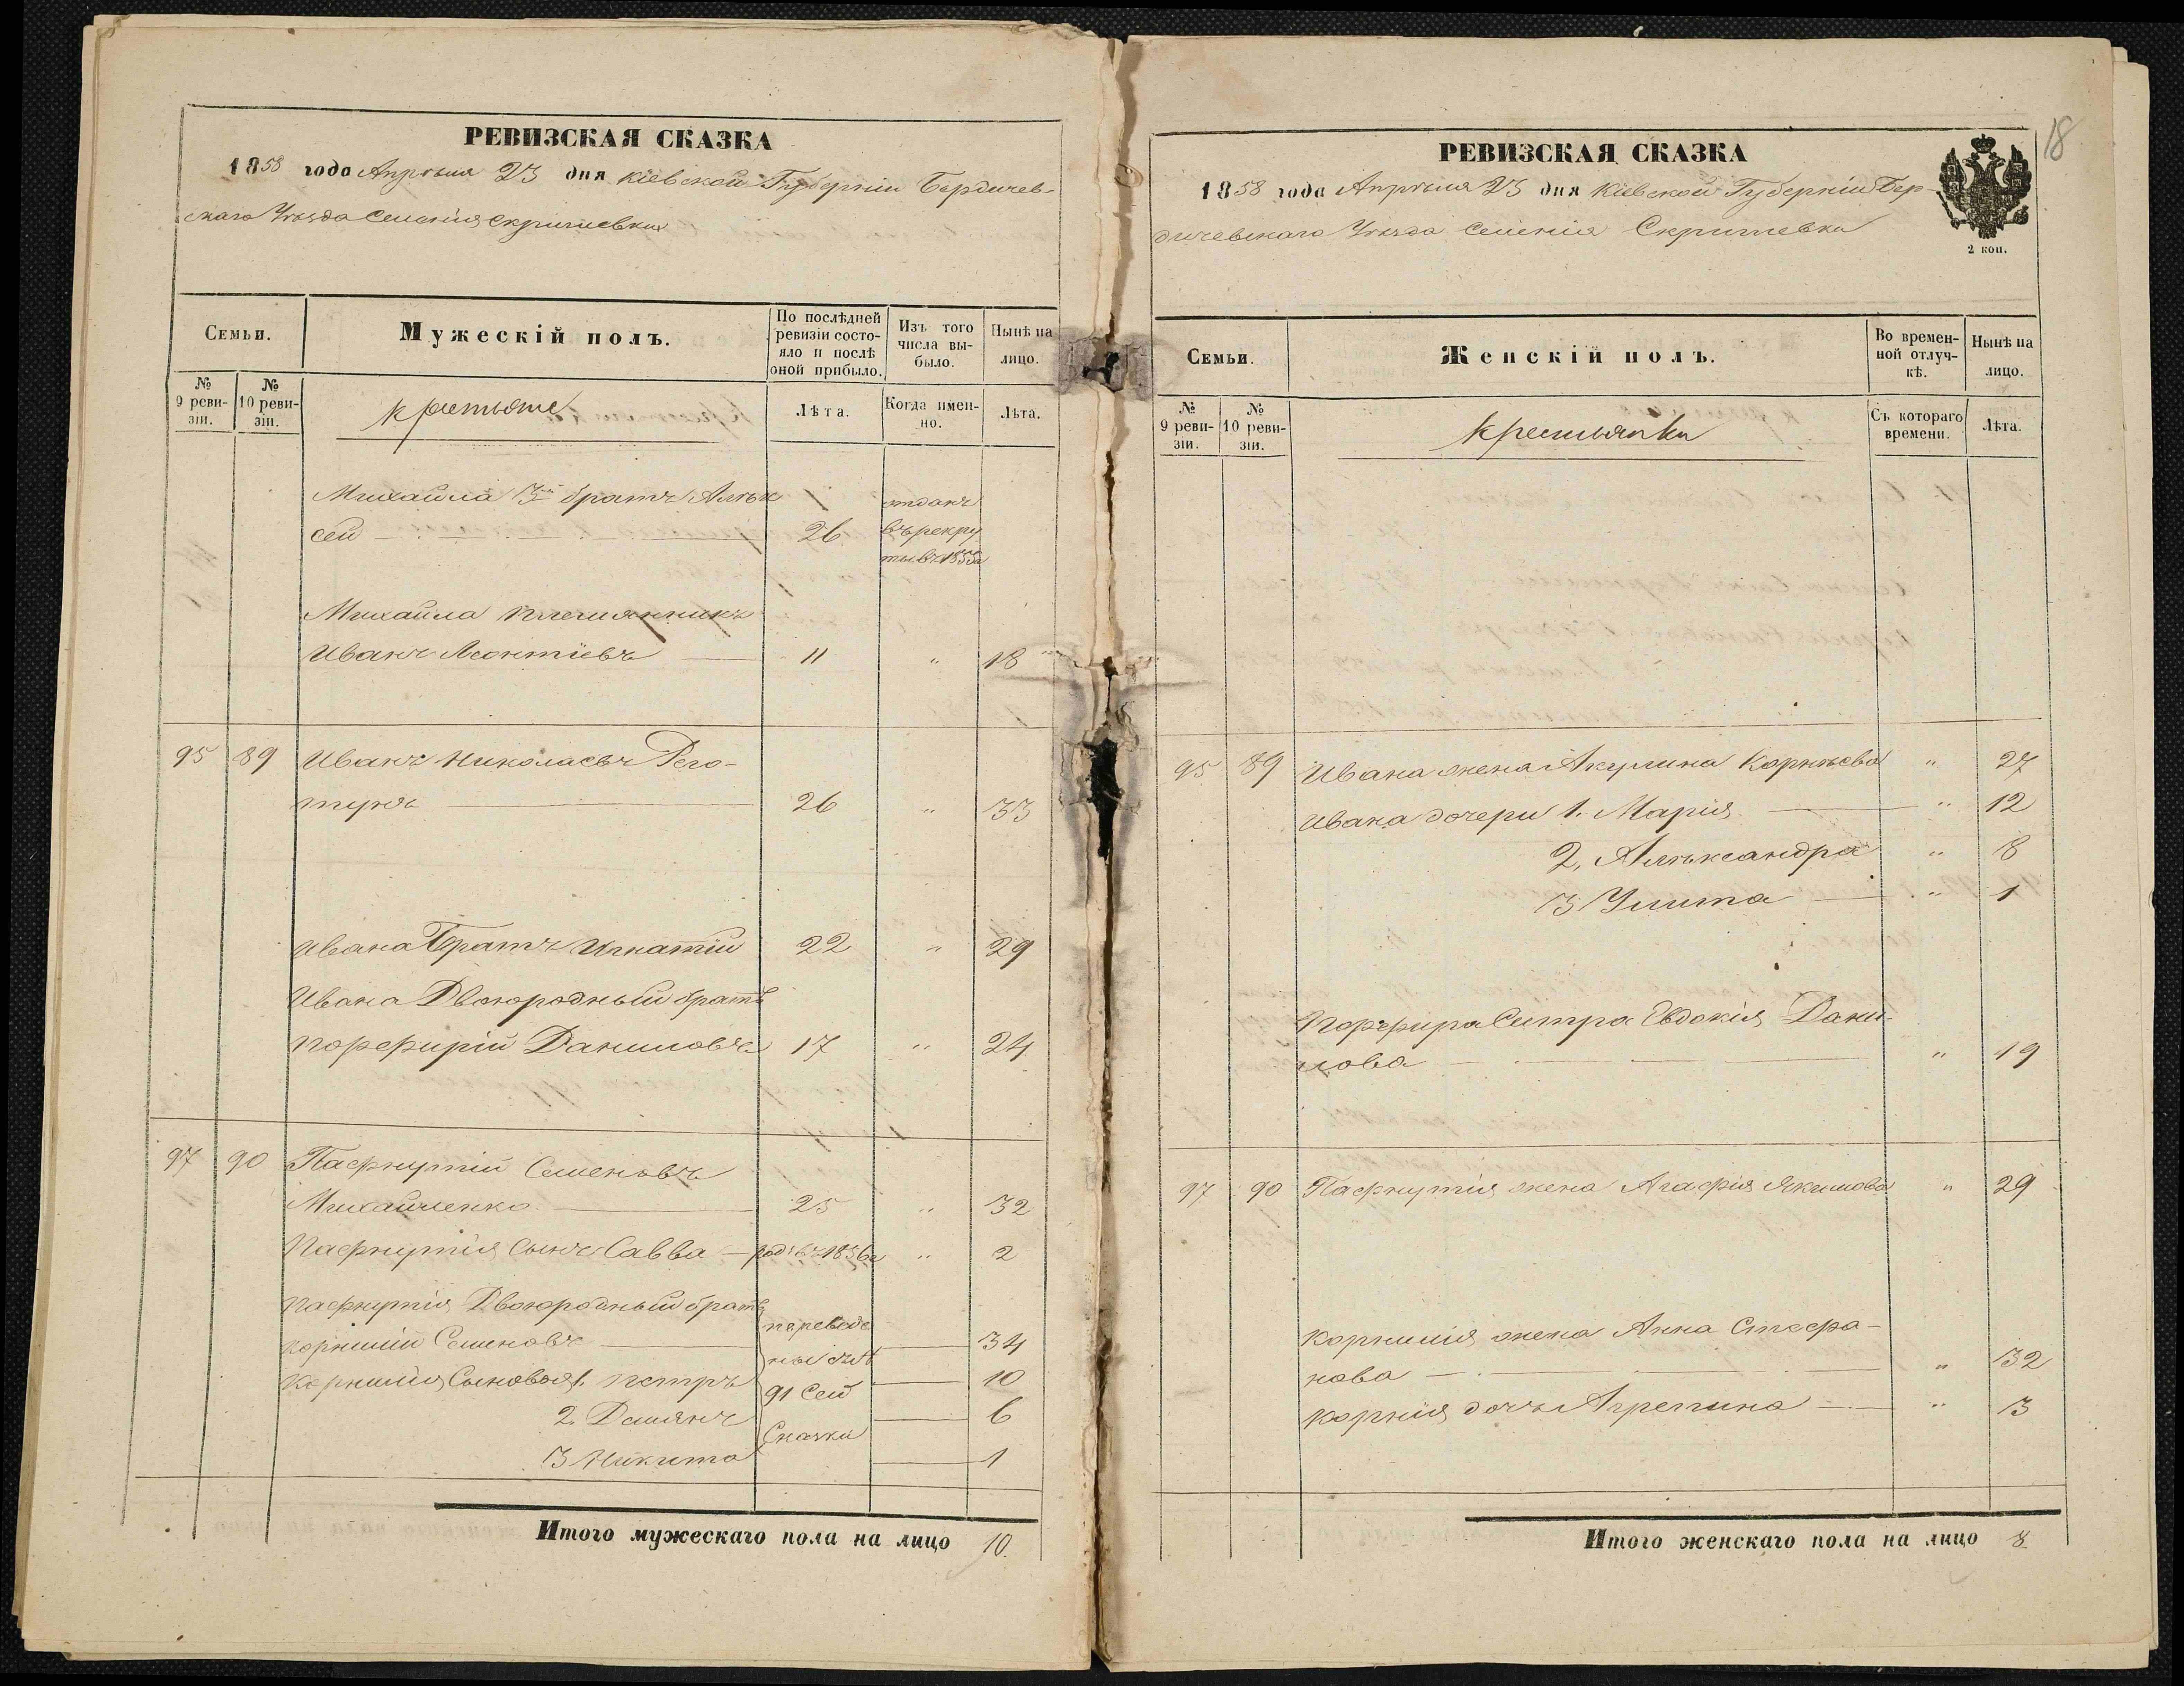 РЕВИЗСКАЯ СКАЗКА
1858 года Апрѣля 23 дня Кіевской Губерніи Бердичев-
скаго Уѣзда Селенія Скришевки
Семьи.
Мужескій полъ.
По послѣдней ревизіи состояло и послѣ оной прибыло.
Изъ того числа выбыло.
Нынѣ на лицо.
№ 9 ревизіи.
№ 10 ревизіи.
крестьяне
Лѣта.
Когда именно.
Лѣта.
Михайла 3й братъ Алѣк
сей 26 отданъ въ рекру
ты въ 1855 г
Михайла племянникъ
Иванъ Леонтіевъ 11 " 18
95 89 Иванъ Николаевъ Рего-
тунъ 26 " 33
Ивана Братъ Игнатій 22 " 29
Ивана Двоюродный братъ
Порфирій Даниловъ 17 " 24
97 90 Пафнутій Семеновъ
Михайленко 25 " 32
Пафнутія Сынъ Савва род: въ 1856 г " 2
Пафнутія Двоюродный братъ
Корнилій Семеновъ переведе 34
ны съ №
Корнилія Сыновья 1. Петръ 91 Сей 10
2. Демянъ 6
Сказки
3 Никита 1
Итого мужескаго пола на лицо 10.
18
РЕВИЗСКАЯ СКАЗКА
1858 года Апрѣля 23 дня Кіевской Губерніи Бер-
дичевскаго Уѣзда Селенія Скришевки
2 коп.
Семьи.
Женскій полъ.
Во временной отлучкѣ.
Нынѣ на лицо.
№ 9 ревизіи.
№ 10 ревизіи.
крестьянки
Съ котораго времени.
Лѣта.
95 89 Ивана жена Акулина Корнѣева " 27
Ивана дочери 1. Марія " 12
2, Алѣксандра " 8
3 Улита " 1
Порфира Сестра Евдокія Дани-
лова " 19
97 90 Пафнутія жена Агафія Якимова " 29
Корнилія жена Анна Стефа-
нова " 32
Корнія дочь Агрепина " 3
Итого женскаго пола на лицо 8